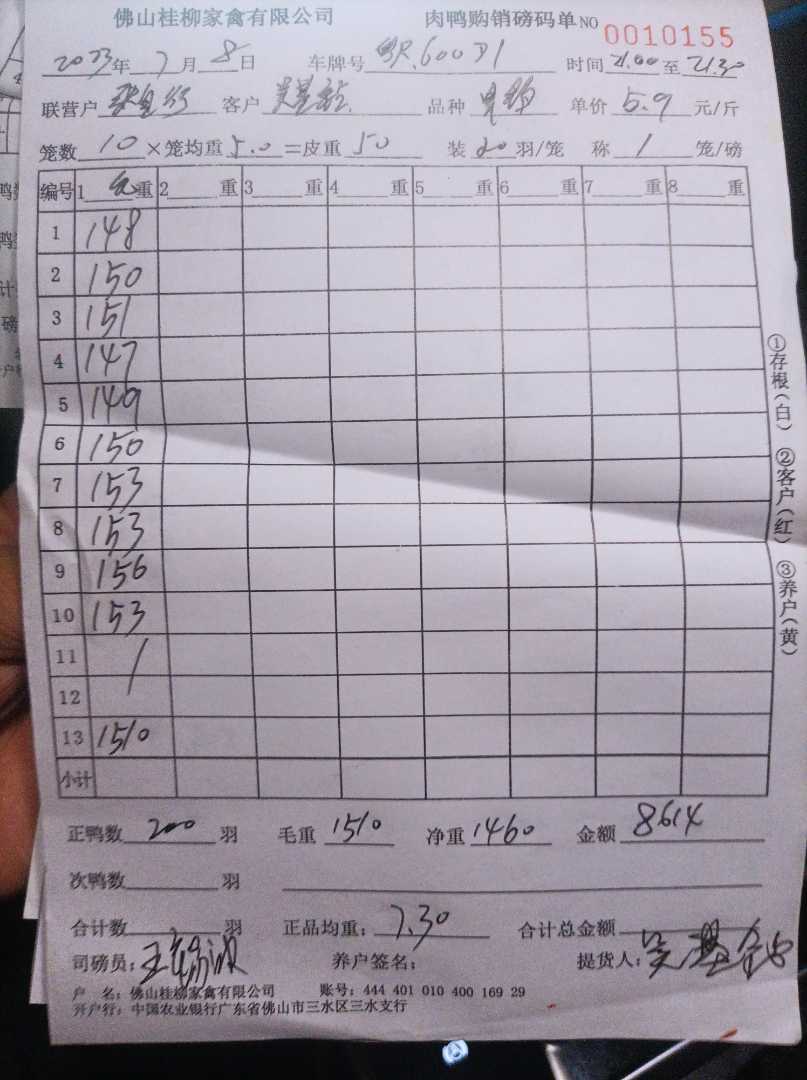 佛山桂柳家禽有限公司 肉鸭购销磅码单 NO 0010155
2023年7月8日 车牌号 600 时间 21.00 至 21.30
联营户 客户 品种 单价 5.9 元/斤
笼数 10 ×笼均重 5.0 =皮重 50 装 20 羽/笼 称 1 笼/磅
编号 1 重 2 重 3 重 4 重 5 重 6 重 7 重 8 重
1 148
2 150
3 151
4 147
5 149
6 150
7 153
8 153
9 156
10 153
11
12
13 1510
小计
正鸭数 200 羽 毛重 1510 净重 1460 金额 8614
次鸭数 羽
合计数 羽 正品均重: 7.30 合计总金额
司磅员: 养户签名: 提货人:
户 名: 佛山桂柳家禽有限公司 账号: 444 401 010 400 169 29
开户行: 中国农业银行广东省佛山市三水区三水支行
①存根(白) ②客户(红) ③养户(黄)